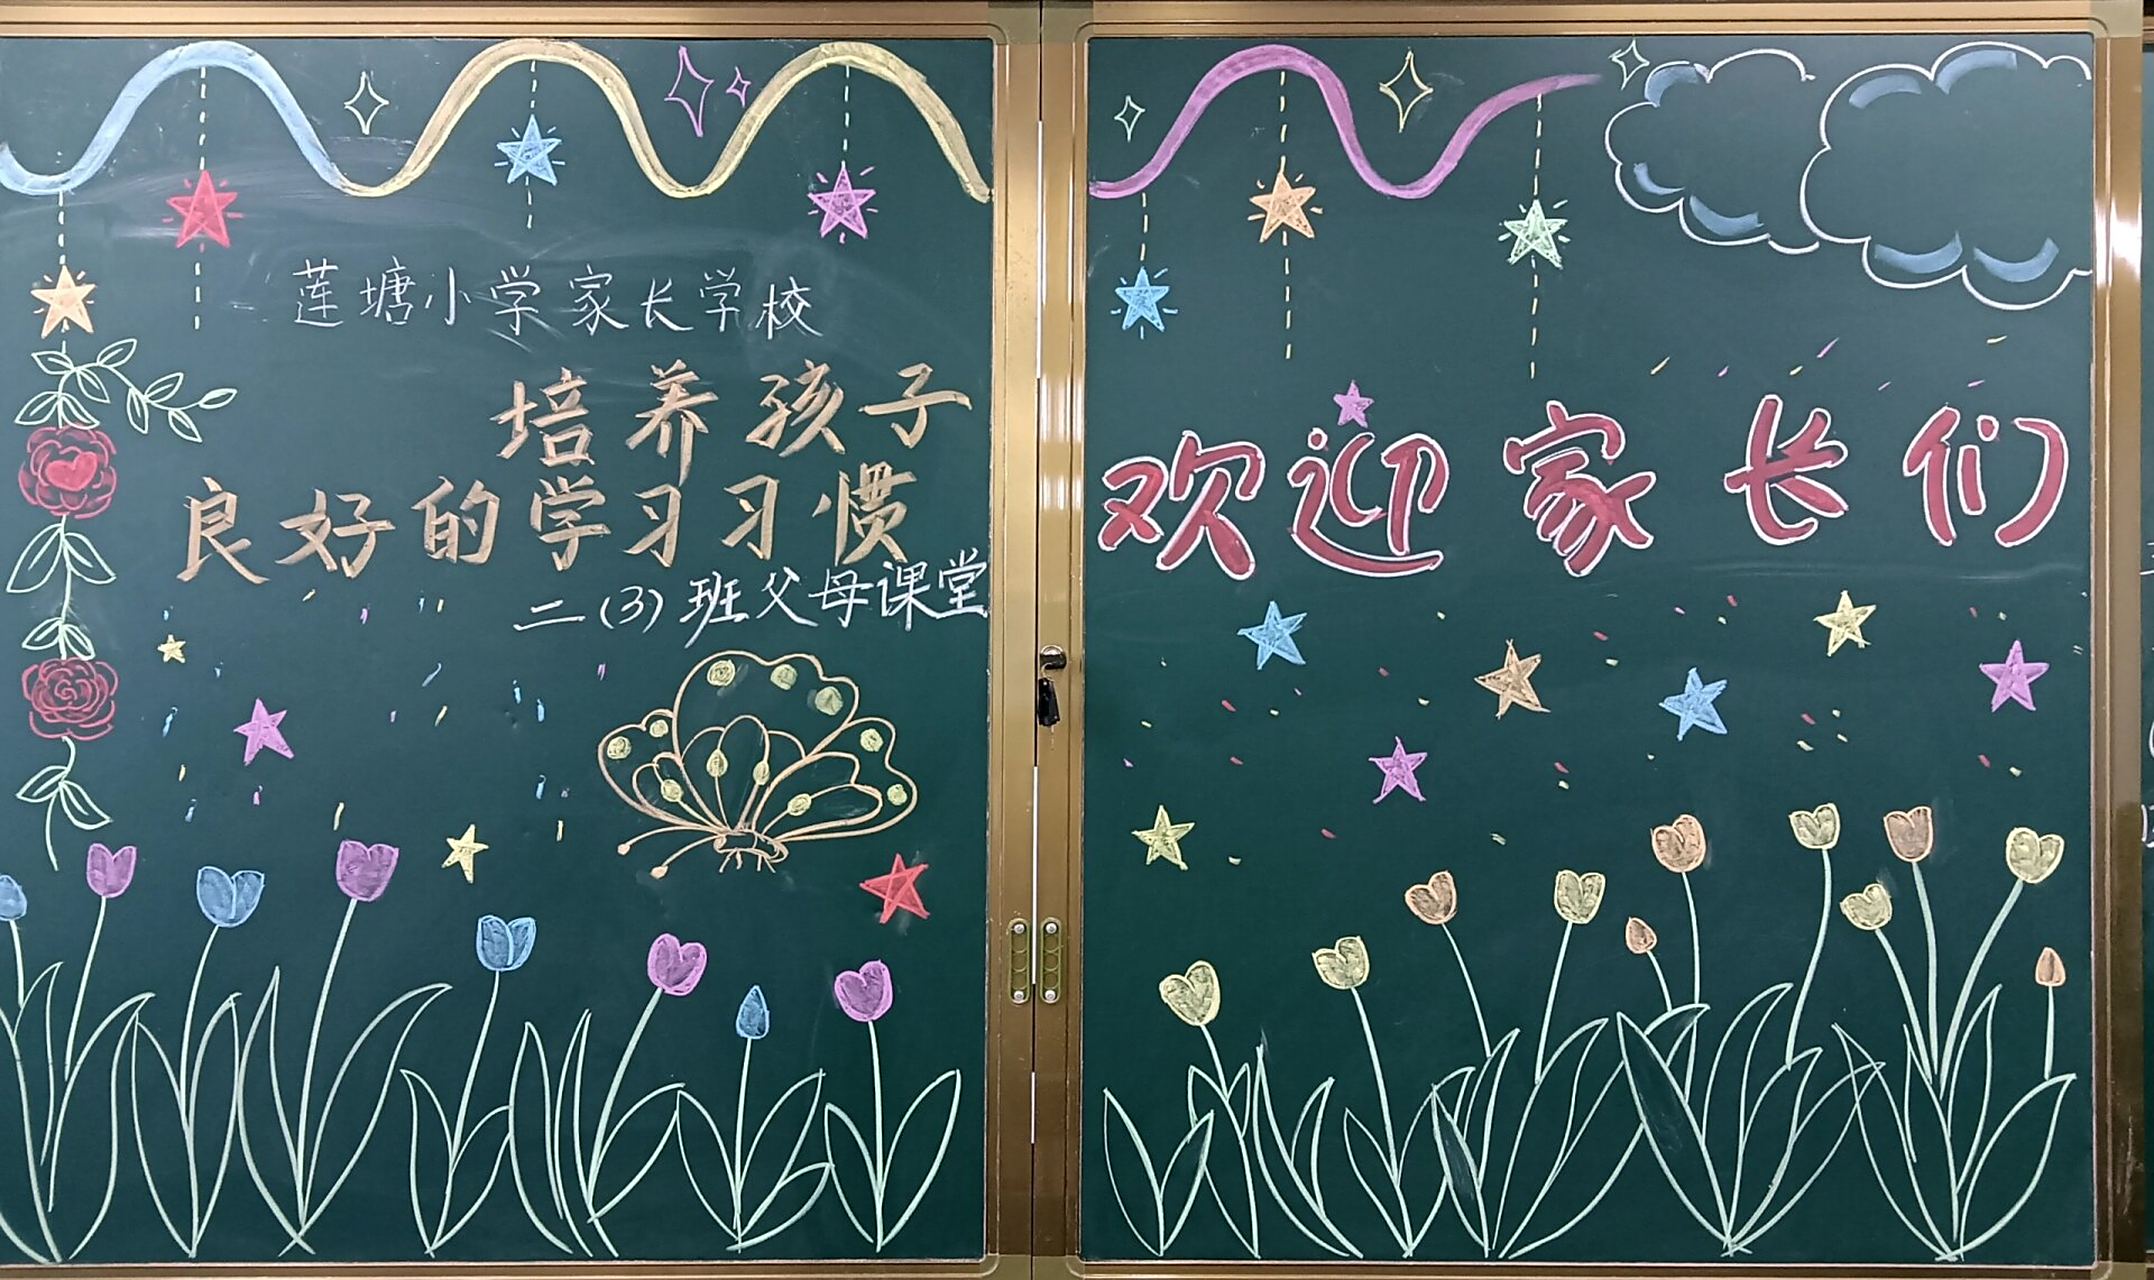 莲塘小学家长学校
培养孩子
良好的学习习惯
二(3)班父母课堂
欢迎家长们